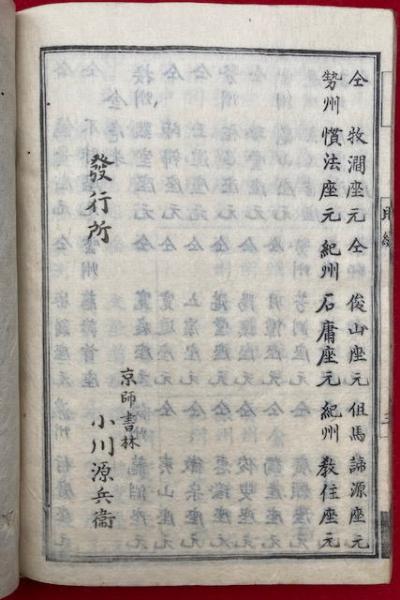 仝 牧澗座元 仝 俊山座元 但馬 諦源座元
勢州 慣法座元 紀州 石庸座元 紀州 教住座元
發行所
京師書林
小川源兵衞
目録
三